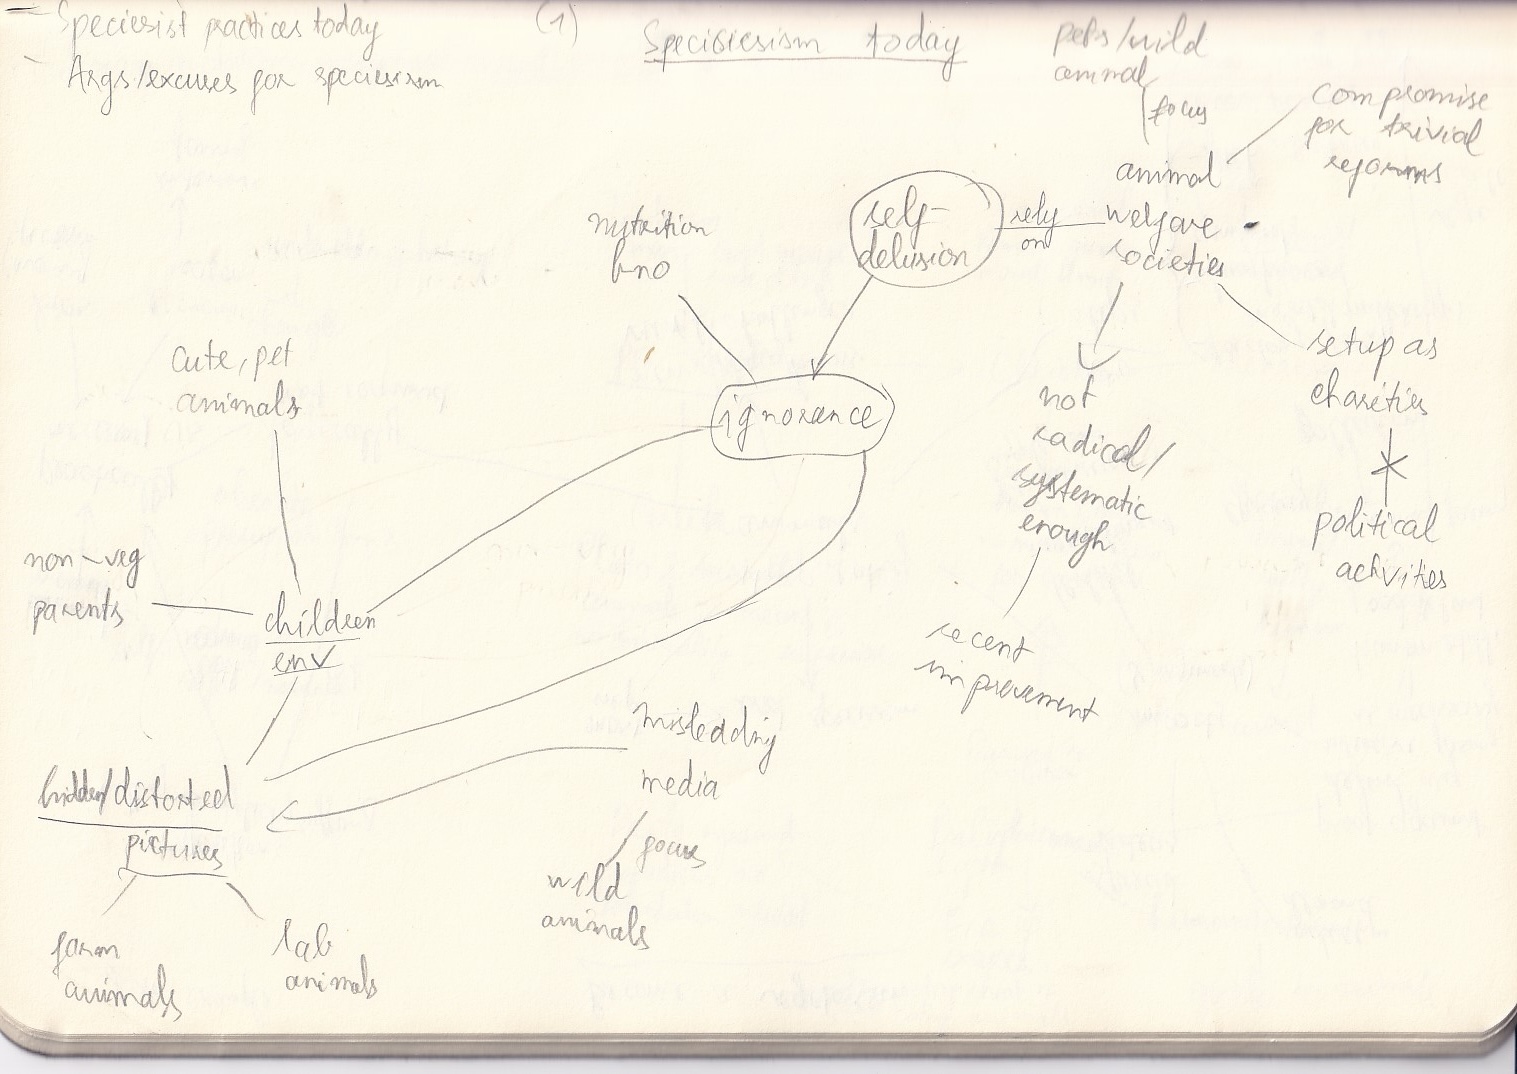 - Speciesist practices today
- Args/excuses for speciesism
(1)
Speciesiesism today
pets/wild
animal
focus
compromise
for trivial
reforms
animal
welfare
societies
rely
on
self-
delusion
nutrition
kno
ignorance
setup as
charities
political
activities
not
radical/
systematic
enough
recent
improvement
cute, pet
animals
non-veg
parents
children
env
hidden/distorted
pictures
farm
animals
lab
animals
misleading
media
focus
wild
animals